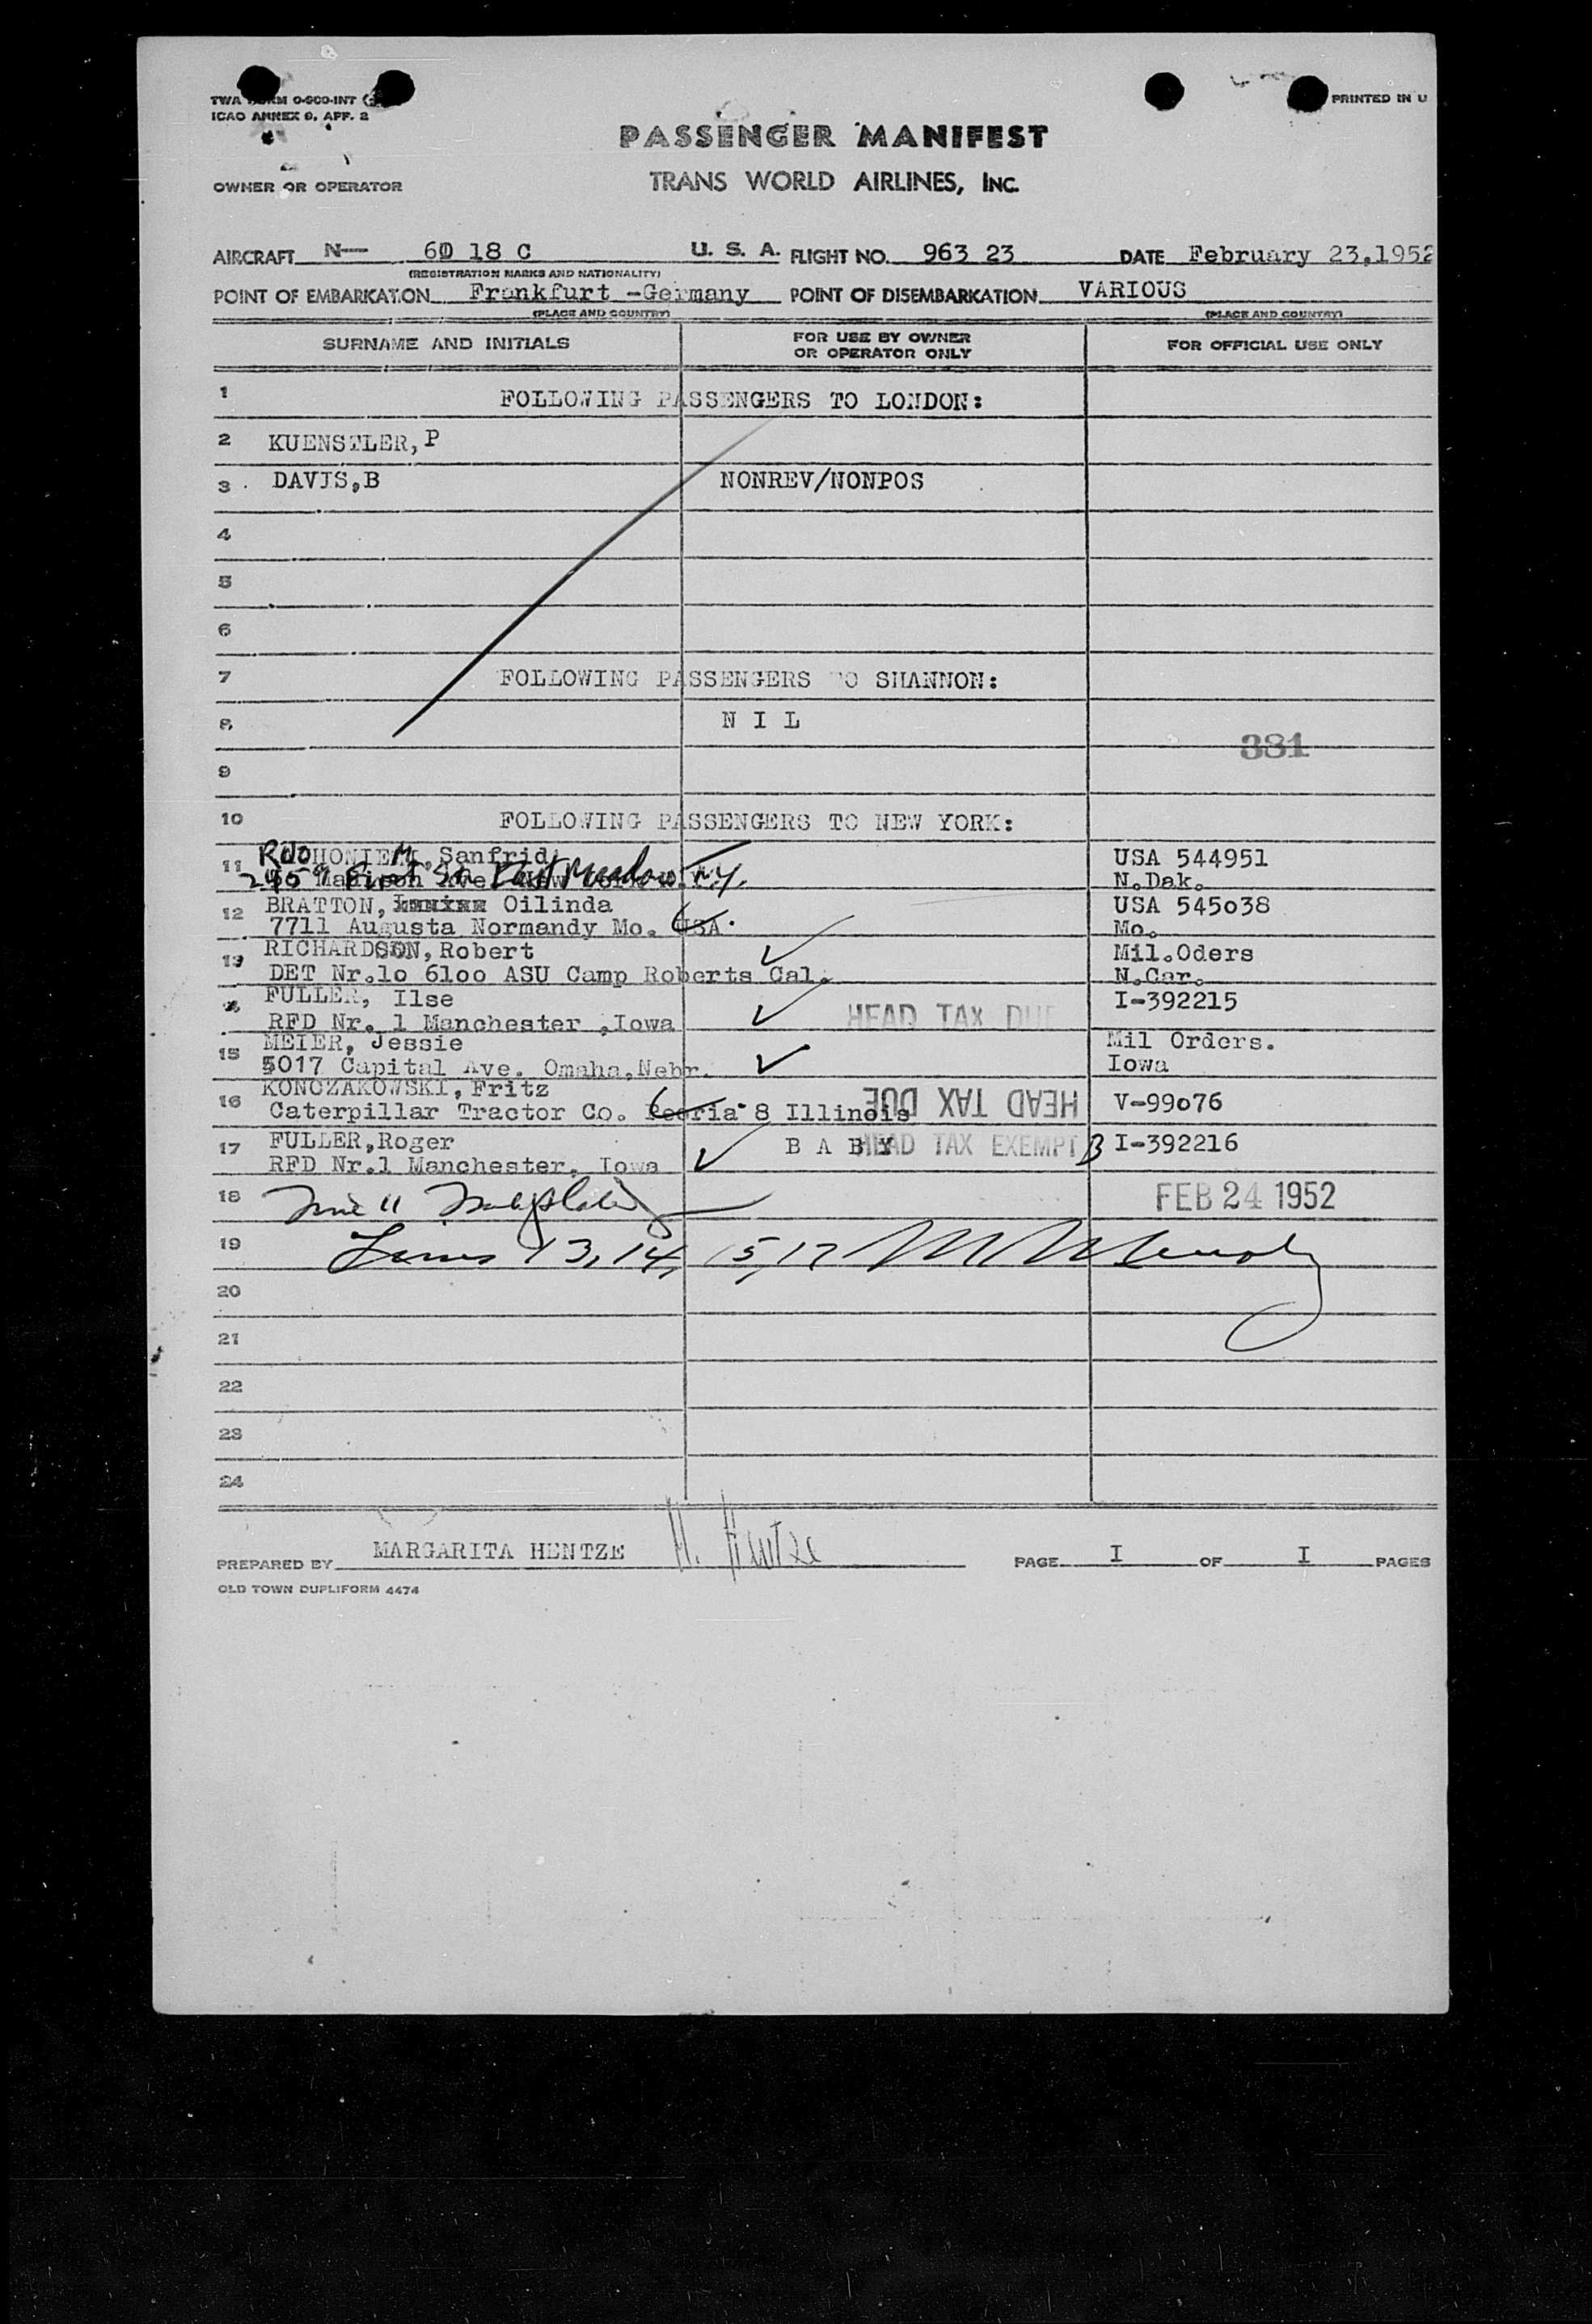 TWA FORM O-900-INT
ICAO ANNEX 9, APP. 2
PRINTED IN U
PASSENGER MANIFEST
OWNER OR OPERATOR
TRANS WORLD AIRLINES, INC.
AIRCRAFT N— 60 18 C U. S. A. FLIGHT NO. 963 23 DATE February 23,1952
(REGISTRATION MARKS AND NATIONALITY)
POINT OF EMBARKATION Frankfurt -Germany POINT OF DISEMBARKATION VARIOUS
(PLACE AND COUNTRY) (PLACE AND COUNTRY)
SURNAME AND INITIALS FOR USE BY OWNER OR OPERATOR ONLY FOR OFFICIAL USE ONLY
1 FOLLOWING PASSENGERS TO LONDON:
2 KUENSTLER,P
3 DAVIS,B NONREV/NONPOS
4
5
6
7 FOLLOWING PASSENGERS TO SHANNON:
8 N I L
381
9
10 FOLLOWING PASSENGERS TO NEW YORK:
11 Sanfrid USA 544951
East Meadow N.Y. N.Dak.
12 BRATTON, Oilinda USA 545o38
7711 Augusta Normandy Mo. USA. Mo.
13 RICHARDSON, Robert Mil.Oders
DET Nr.1o 61oo ASU Camp Roberts Cal. N.Car.
FULLER, Ilse I-392215
RFD Nr. 1 Manchester ,Iowa HEAD TAX DUE
15 MEIER, Jessie Mil Orders.
5017 Capital Ave. Omaha,Nebr. Iowa
16 KONCZAKOWSKI, Fritz
Caterpillar Tractor Co. Peoria 8 Illinois HEAD TAX DUE V-99o76
17 FULLER,Roger B A B Y HEAD TAX EXEMPT B I-392216
RFD Nr.1 Manchester, Iowa
18 FEB 24 1952
19 Lines 13, 14, 15, 17
20
21
22
23
24
PREPARED BY MARGARITA HENTZE M. Hentze PAGE I OF I PAGES
OLD TOWN DUPLIFORM 4474